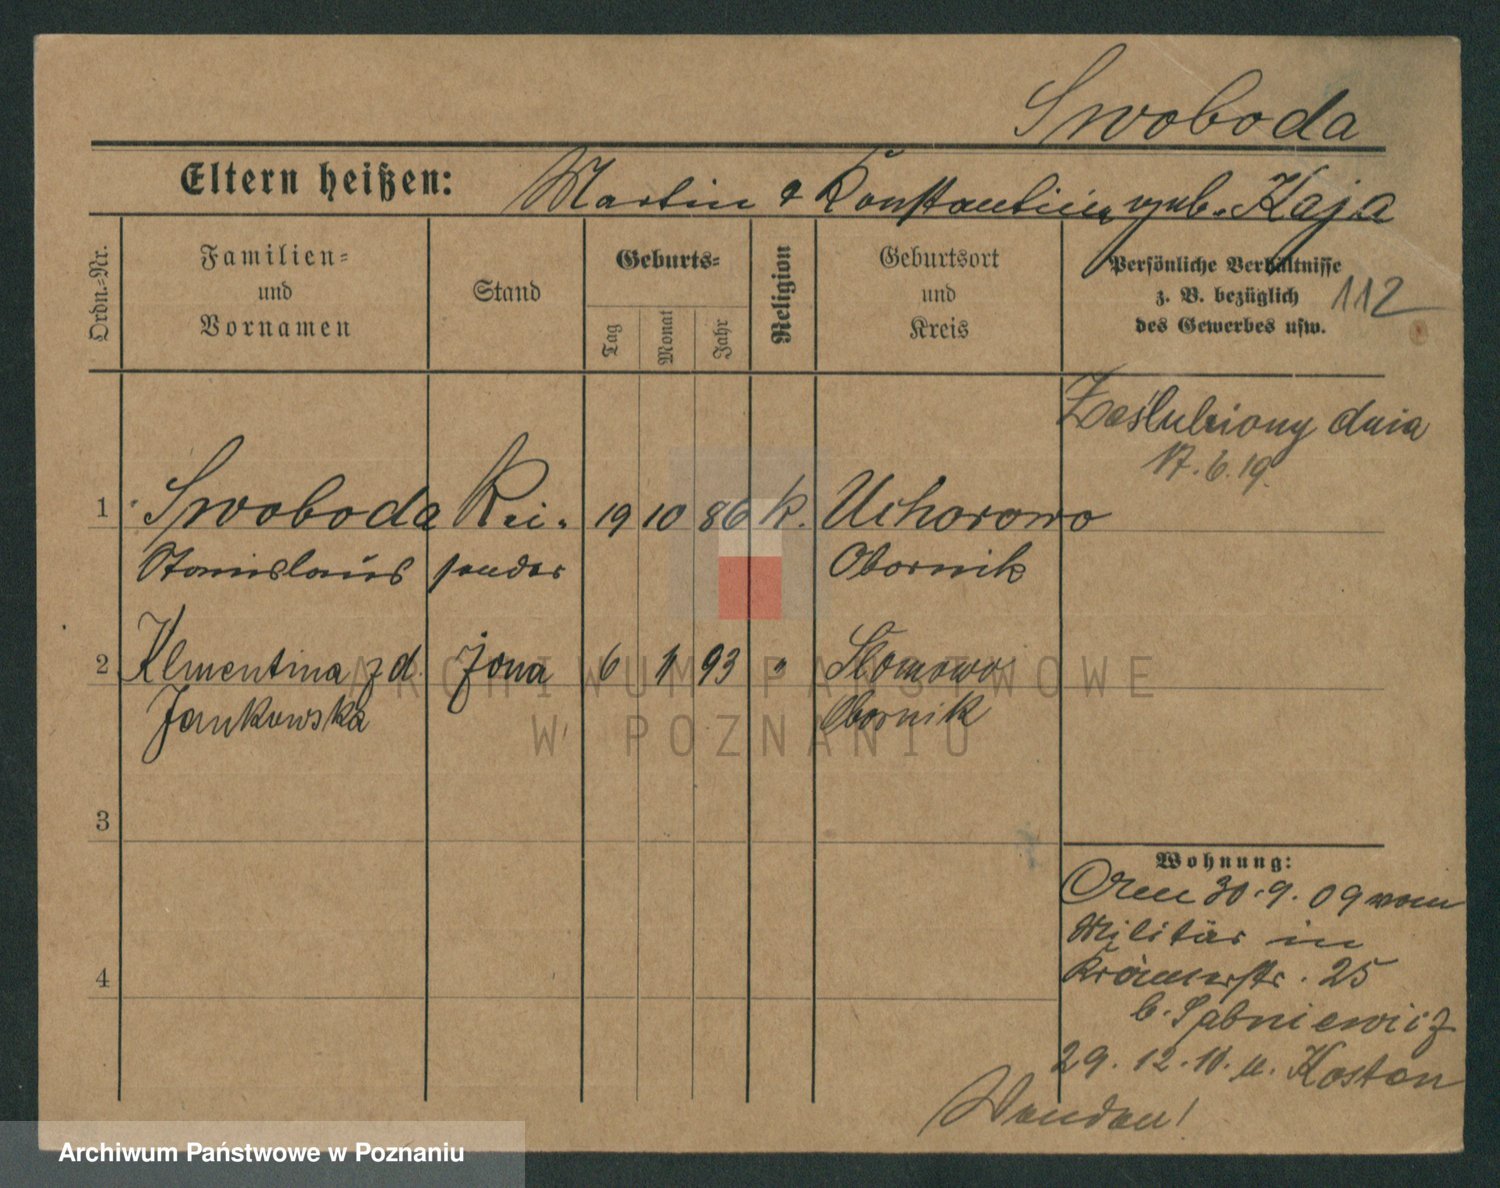 Swoboda
Eltern heißen: Martin & Konstantina geb. Kaja
Ordn.-Nr.
Familien-
und
Vornamen
Stand
Geburts-
Tag
Monat
Jahr
Religion
Geburtsort
und
Kreis
Persönliche Verhältnisse
z. B. bezüglich
des Gewerbes usw.
112
Zaślubiony dnia
17.6.19.
1 Swoboda Rei- 19 10 86 k. Uchorowo
Stanislaus sender Obornik
2 Klmentina zd. żona 6 11 93 " Słomowo
Jankowska Obornik
3
4
Wohnung:
30.9.09 vom
Militär in
Krämerstr. 25
b. Sabniewicz
29.12.10. n. Kosten
ARCHIWUM PAŃSTWOWE
W POZNANIU
Archiwum Państwowe w Poznaniu